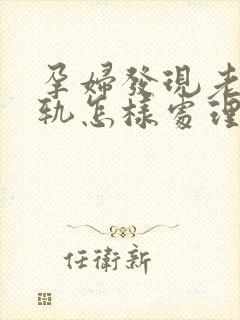 孕婦發現老
軌怎樣處理
任衛新